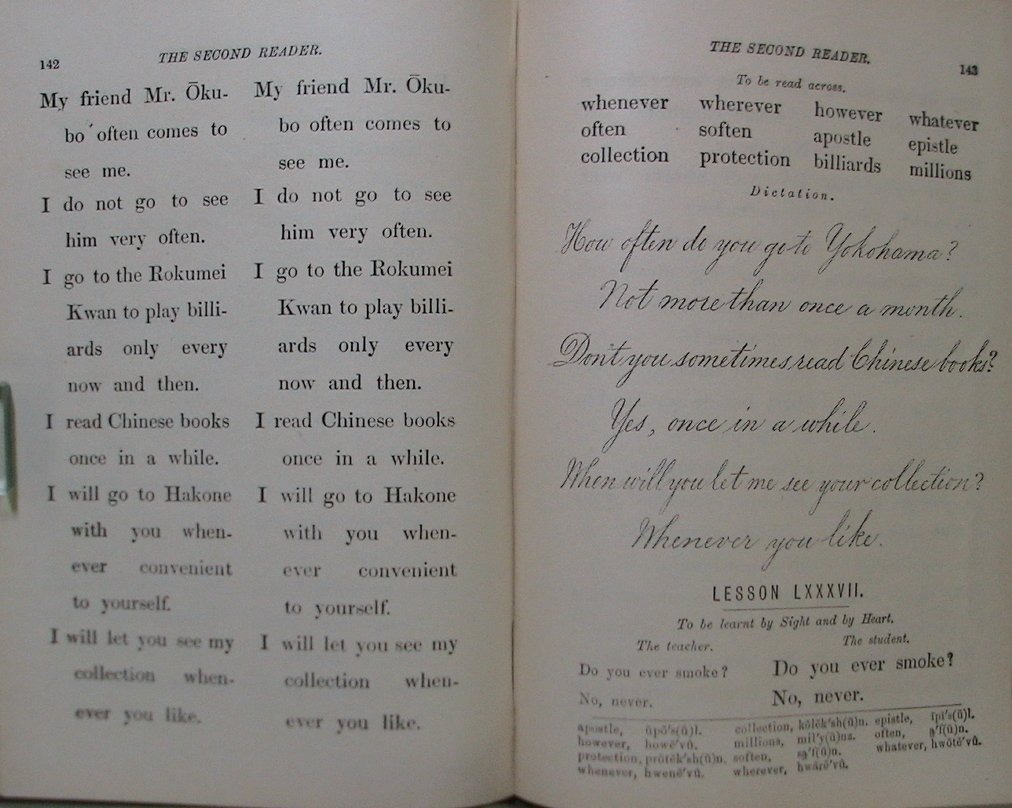 142
THE SECOND READER.
My friend Mr. Ōku-
bo often comes to
see me.
I do not go to see
him very often.
I go to the Rokumei
Kwan to play billi-
ards only every
now and then.
I read Chinese books
once in a while.
I will go to Hakone
with you when-
ever convenient
to yourself.
I will let you see my
collection when-
ever you like.
My friend Mr. Ōku-
bo often comes to
see me.
I do not go to see
him very often.
I go to the Rokumei
Kwan to play billi-
ards only every
now and then.
I read Chinese books
once in a while.
I will go to Hakone
with you when-
ever convenient
to yourself.
I will let you see my
collection when-
ever you like.
THE SECOND READER.
143
To be read across.
whenever wherever however whatever
often soften apostle epistle
collection protection billiards millions
Dictation.
How often do you go to Yokohama?
Not more than once a month.
Don't you sometimes read Chinese books?
Yes, once in a while.
When will you let me see your collection?
Whenever you like.
LESSON LXXXVII.
To be learnt by Sight and by Heart.
The teacher. The student.
Do you ever smoke? Do you ever smoke?
No, never. No, never.
apostle, collection, epistle,
however, millions, often,
protection, soften, whatever,
whenever, wherever,